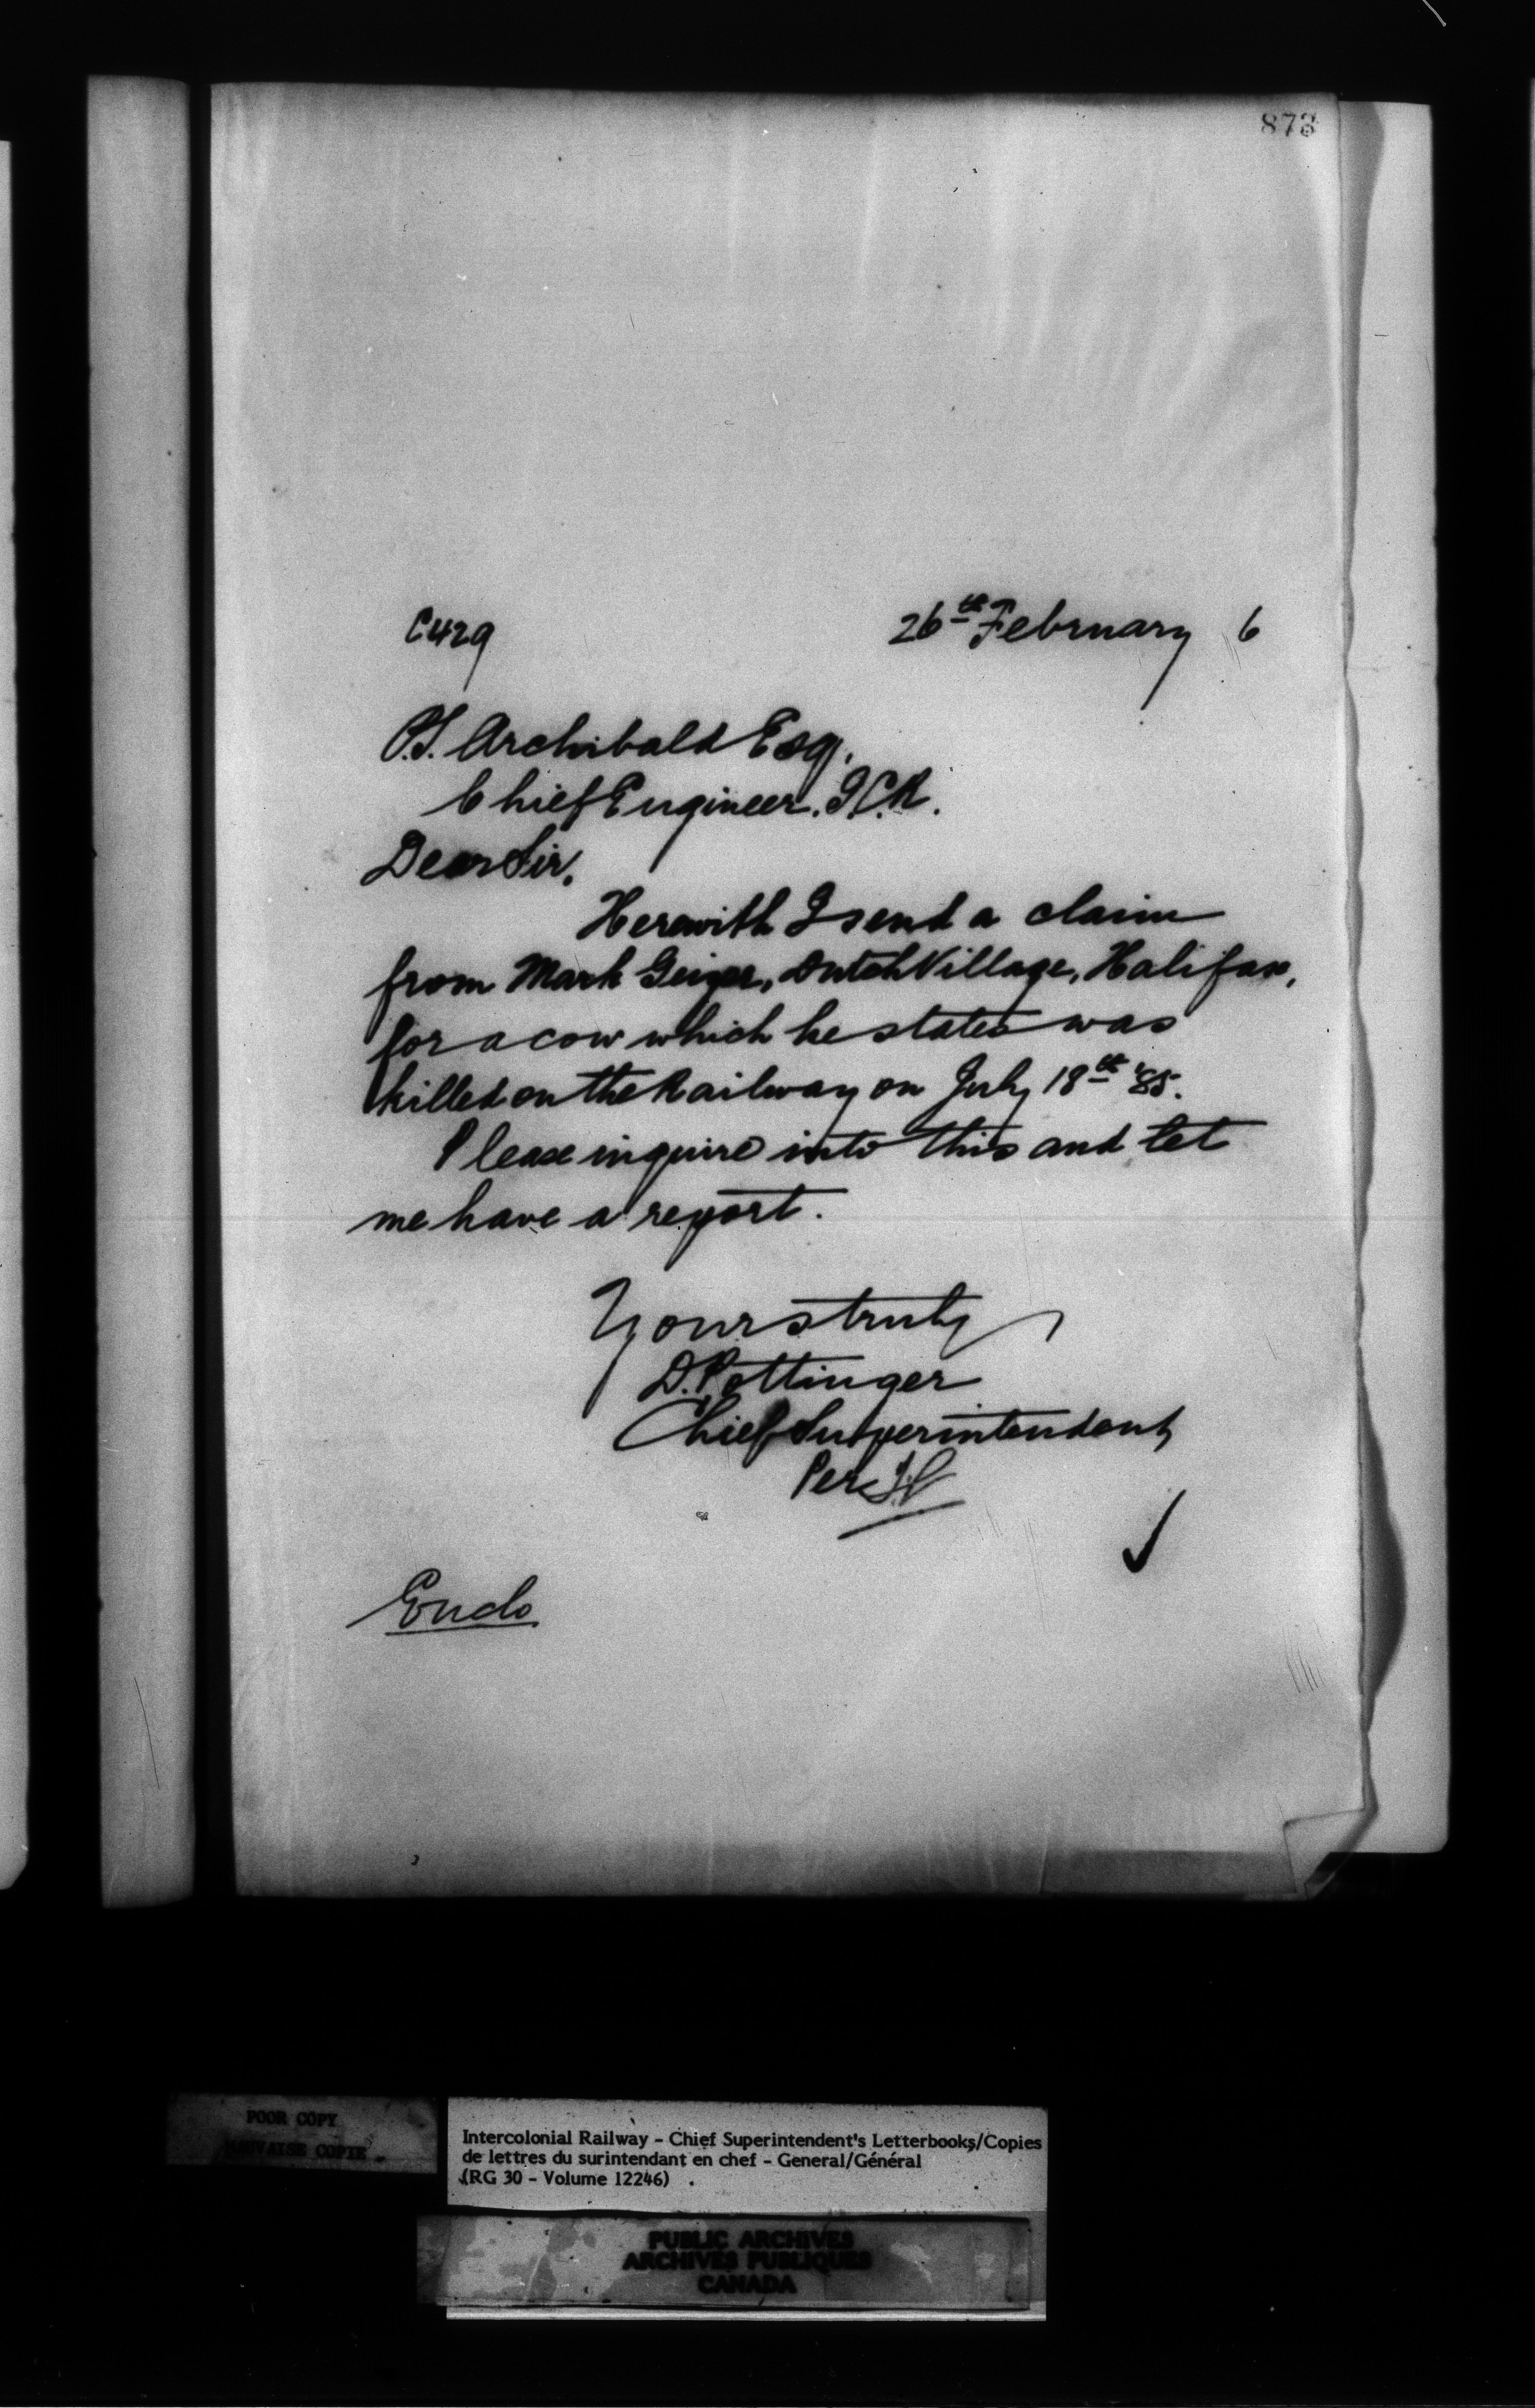 873
C429 26th February 6
P.S. Archibald Esq.
Chief Engineer. I.C.R.
Dear Sir,
Herewith I send a claim
from Mark Geizer, Dutch Village, Halifax,
for a cow which he states was
killed on the Railway on July 18th '85.
Please inquire into this and let
me have a report.
Yours truly
D. Pottinger
Chief Superintendent
Per
Enclo
POOR COPY
MAUVAISE COPIE
Intercolonial Railway - Chief Superintendent's Letterbooks/Copies
de lettres du surintendant en chef - General/Général
(RG 30 - Volume 12246)
PUBLIC ARCHIVES
ARCHIVES PUBLIQUES
CANADA